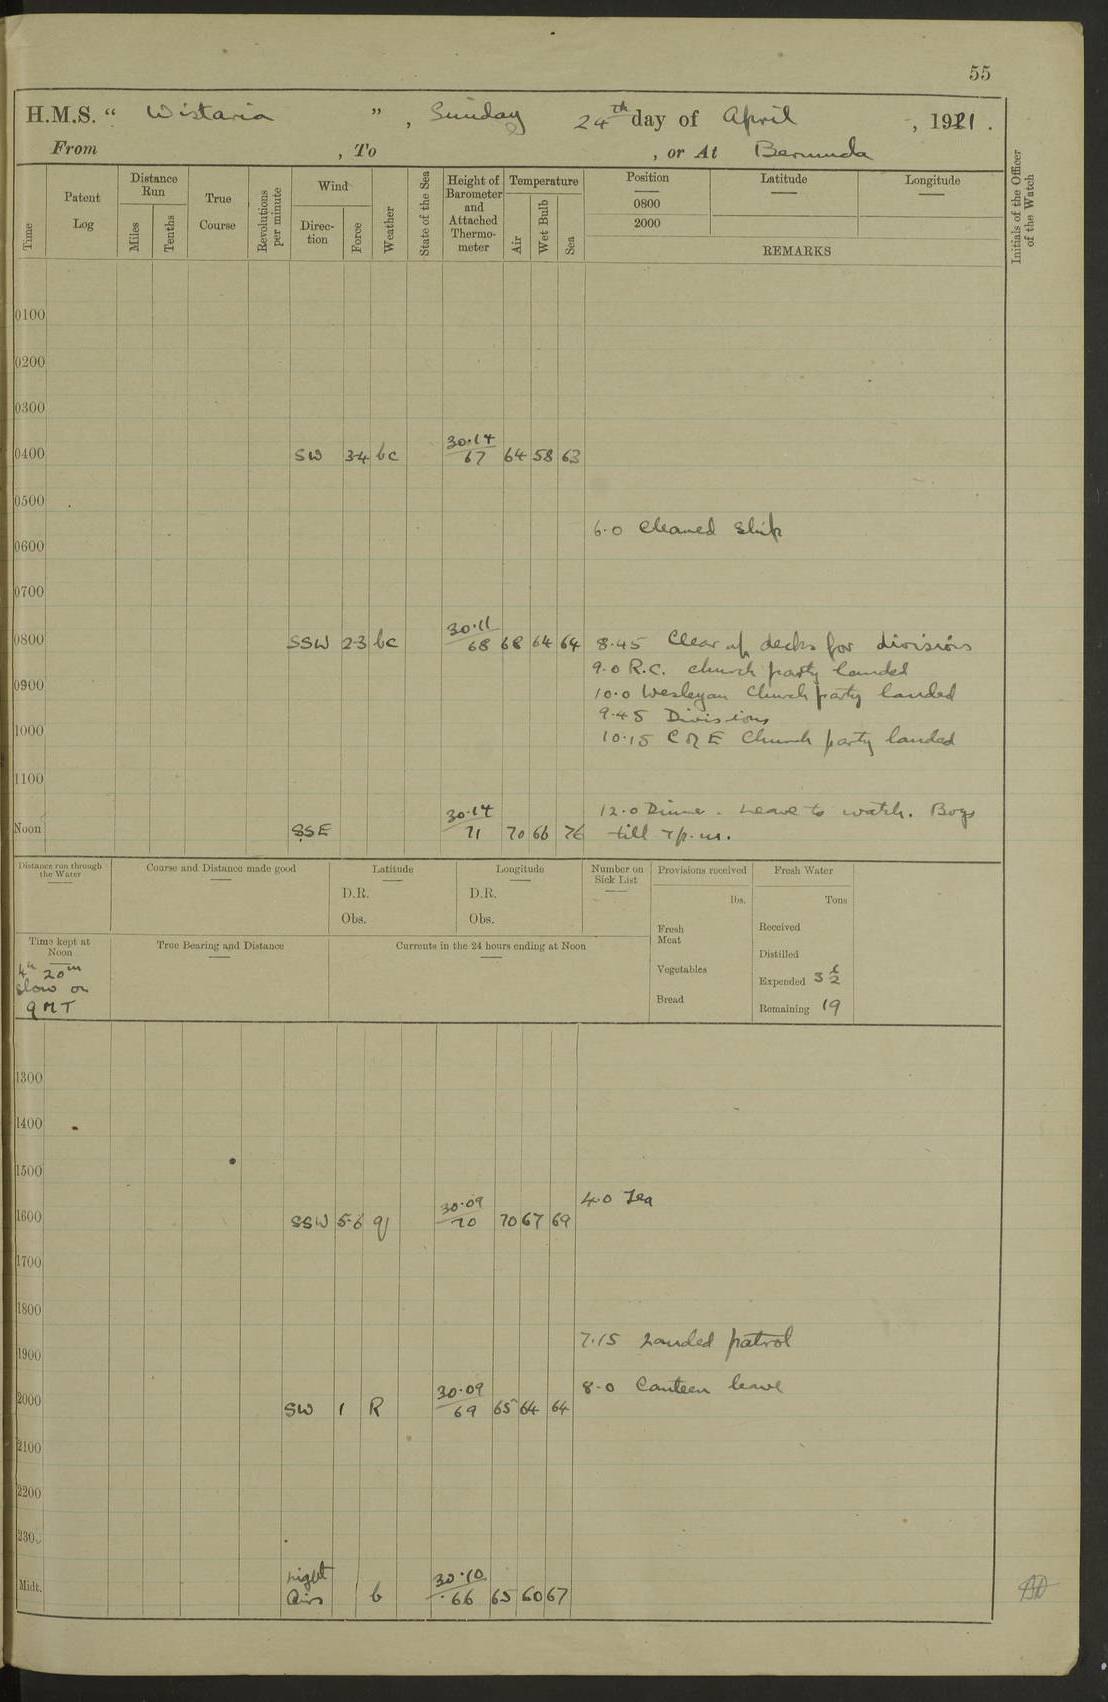 55
H.M.S. “ Wistaria ” , Sunday 24th day of April , 1921 .
From , To , or At Bermuda
Time
Patent Log
Distance Run
Miles
Tenths
True Course
Revolutions per minute
Wind
Direc-tion
Force
Weather
State of the Sea
Height of Barometer and Attached Thermo-meter
Temperature
Air
Wet Bulb
Sea
Position
0800
2000
Latitude
Longitude
REMARKS
Initials of the Officer of the Watch
0100
0200
0300
0400 SW 3-4 bc 30·14 67 64 58 63
0500
6·0 Cleaned Ship
0600
0700
0800 SSW 2-3 bc 30·11 68 68 64 64 8·45 Clear up decks for divisions
9·0 R.C. church party landed
0900
10·0 Wesleyan Church party landed
9·45 Divisions
1000
10·15 C of E Church party landed
1100
12·0 Dinner. Leave to watch. Boys
Noon SSE 30·14 71 70 66 76 till 7 p.m.
Distance run through the Water
Course and Distance made good
Latitude
D.R.
Obs.
Longitude
D.R.
Obs.
Number on Sick List
Provisions received
lbs.
Fresh Meat
Vegetables
Bread
Fresh Water
Tons
Received
Distilled
Expended 3½
Remaining 19
Time kept at Noon
4h 20m
slow on
GMT
True Bearing and Distance
Currents in the 24 hours ending at Noon
1300
1400
1500
4·0 Tea
1600 SSW 5-6 q 30·09 70 70 67 69
1700
1800
7·15 Landed patrol
1900
8·0 Canteen leave
2000 SW 1 R 30·09 69 65 64 64
2100
2200
2300
Midt. Light Airs b 30·10 66 65 60 67